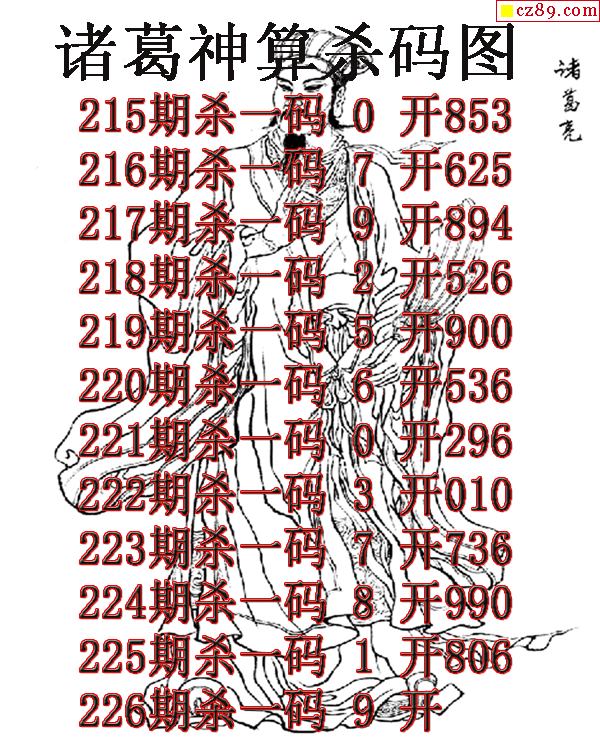 cz89.com
诸葛神算杀码图
诸葛亮
215期杀一码 0 开853
216期杀一码 7 开625
217期杀一码 9 开894
218期杀一码 2 开526
219期杀一码 5 开900
220期杀一码 6 开536
221期杀一码 0 开296
222期杀一码 3 开010
223期杀一码 7 开736
224期杀一码 8 开990
225期杀一码 1 开806
226期杀一码 9 开